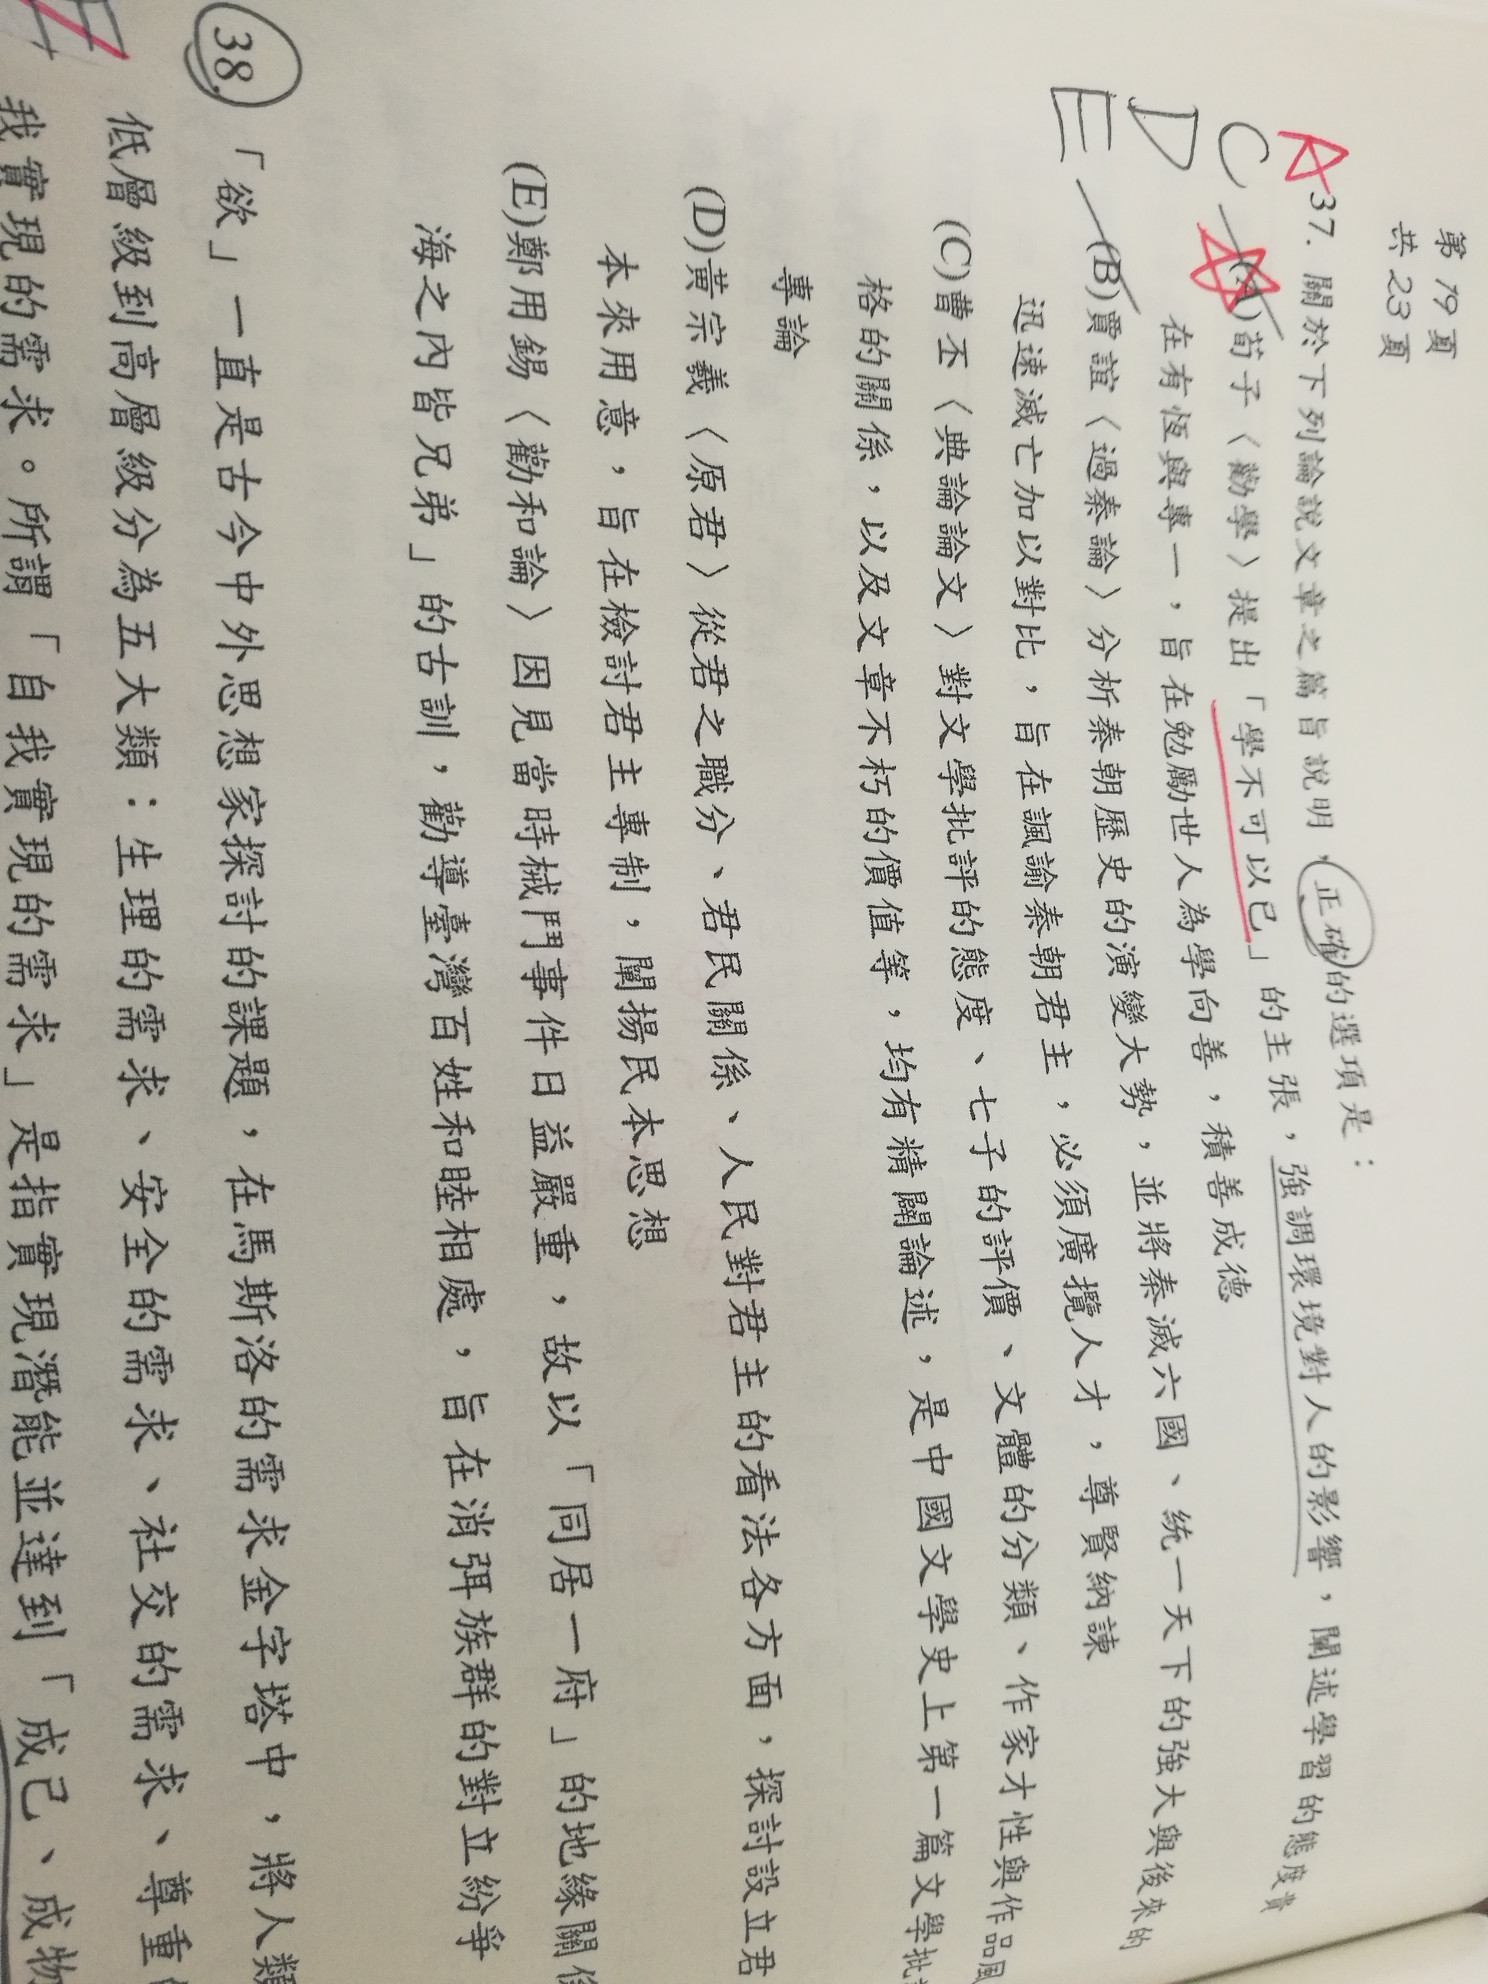 第19頁
共23頁
A
C
D
E
37. 關於下列論說文章之篇旨說明，正確的選項是：
(A)荀子〈勸學〉提出「學不可以已」的主張，強調環境對人的影響，闡述學習的態度貴
在有恆與專一，旨在勉勵世人為學向善，積善成德
(B)賈誼〈過秦論〉分析秦朝歷史的演變大勢，並將秦滅六國、統一天下的強大與後來的
迅速滅亡加以對比，旨在諷諭秦朝君主，必須廣攬人才，尊賢納諫
(C)曹丕〈典論論文〉對文學批評的態度、七子的評價、文體的分類、作家才性與作品風
格的關係，以及文章不朽的價值等，均有精闢論述，是中國文學史上第一篇文學批
專論
(D)黃宗羲〈原君〉從君之職分、君民關係、人民對君主的看法各方面，探討設立君
本來用意，旨在檢討君主專制，闡揚民本思想
(E)鄭用錫〈勸和論〉因見當時械鬥事件日益嚴重，故以「同居一府」的地緣關係
海之內皆兄弟」的古訓，勸導臺灣百姓和睦相處，旨在消弭族群的對立紛爭
38 「欲」一直是古今中外思想家探討的課題，在馬斯洛的需求金字塔中，將人類
低層級到高層級分為五大類：生理的需求、安全的需求、社交的需求、尊重
我實現的需求。所謂「自我實現的需求」是指實現潛能並達到「成己、成物